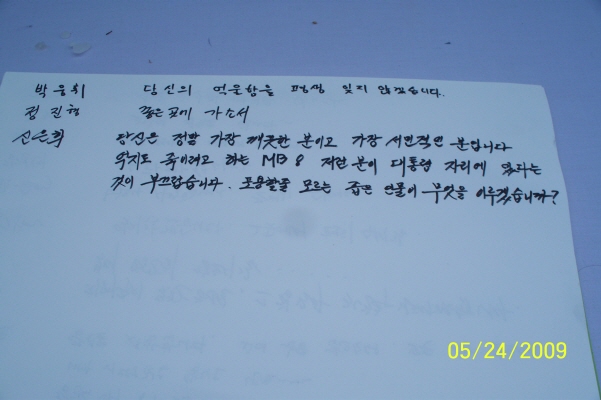 박웅휘 당신의 억울함을 평생 잊지 않겠습니다.
정진형 좋은 곳에 가소서
신은희 당신은 정말 가장 깨끗한 분이고 가장 서민적인 분입니다
억지로 죽이려고 하는 MB 저런 분이 대통령 자리에 있다는
것이 부끄럽습니다. 포용할줄 모르는 좁은 인물이 무엇을 이루겠습니까?
05/24/2009